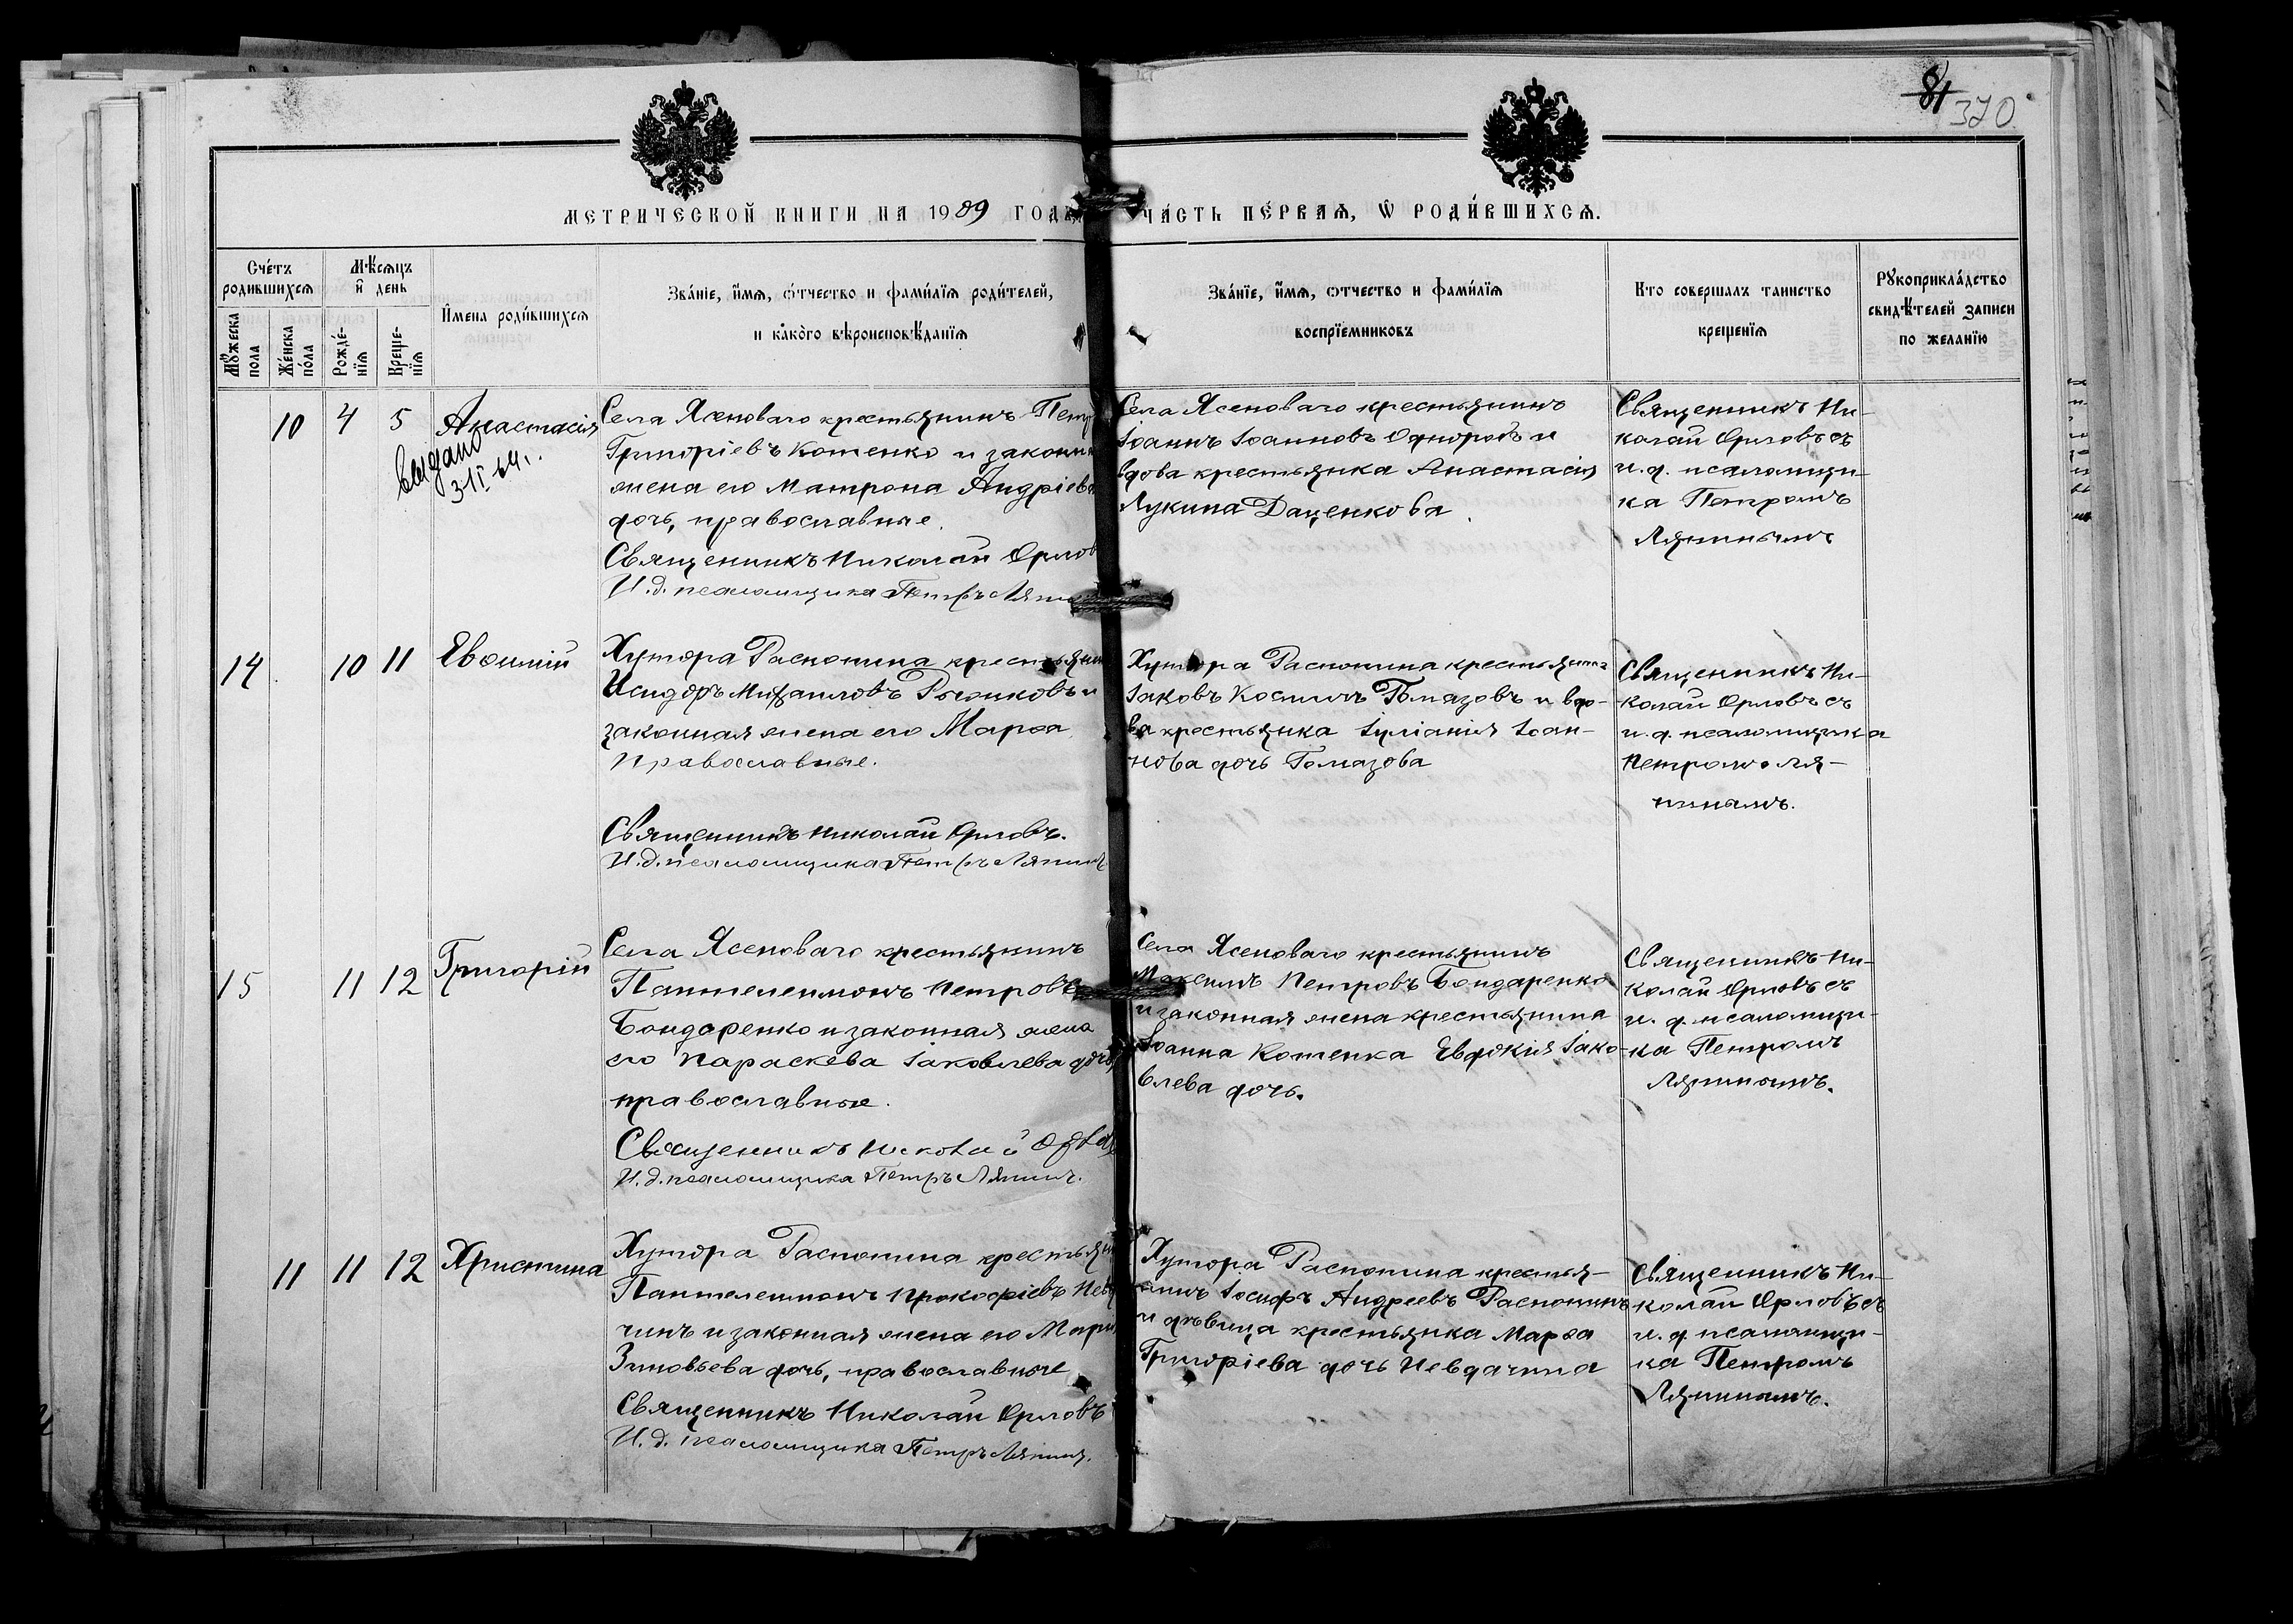 81
370
МЕТРИЧЕСКОЙ КНИГИ НА 1909 ГОДЪ
ЧА́СТЬ ПЕ́РВАѦ, Ѡ РОДИ́ВШИХСѦ.
Сче́тъ родившихсѧ
Мꙋжеска пола
Же́нска по́ла
Мѣ́сѧцъ и҆ день
Рожде́нїѧ
Креще́нїѧ
И҆мена роди́вшихсѧ
Зва́нїе, и҆́мѧ, ѻ҆́тчество и фами́лїѧ роди́телей,
и како́гѡ вѣроисповѣ́данїѧ
Зва́нїе, и҆́мѧ, ѻтчество и фами́лїѧ
воспрїемниковъ
Кто соверша́лъ таинство
креще́нїѧ
Рꙋкоприкла́дство
свидѣ́телей записи
по жела́нїю
10 4 5
Анастасія
выдано
3-II 64 г.
Села Ясеноваго крестьянинъ Петр
Григоріевъ Котенко и законн
жена его Матрона Андріева
дочь, православные.
Священникъ Николай Орлов
И.д. псаломщика Петръ Ляпи
Села Ясеноваго крестьянинъ
Іоаннъ Іоанновъ Однородъ и
вдова крестьянка Анастасія
Лукина Даценкова.
Священникъ Ни-
колай Орловъ съ
и. д. псаломщи-
ка Петромъ
Ляпинымъ
14 10 11
Евѳимій
Хутора Распопина крестьянин
Исидоръ Михаиловъ и
законная жена его Марѳа
православные.
Священникъ Николай Орловъ.
И.д. псаломщика Петръ Ляпинъ
Хутора Распопина крестьянинъ
Іаковъ Косминъ Гомазовъ и вдо-
ва крестьянка Іуліанія Іоан-
нова дочь Гомазова
Священникъ Ни-
колай Орловъ съ
и. д. псаломщика
Петромъ Ля-
пинымъ.
15 11 12
Григорій
Села Ясеноваго крестьянинъ
Пантелеимонъ Петровъ
Бондаренко и законная жена
его Параскева Іаковлева дочь,
православные.
Священникъ Николай Орловъ
И.д. псаломщика Петръ Ляпинъ.
Села Ясеноваго крестьянинъ
Максимъ Петровъ Бондаренко
и законная жена крестьянина
Іоанна Котенка Евдокія Іако-
влева дочь.
Священникъ Ни-
колай Орловъ съ
и. д. псаломщи-
ка Петромъ
Ляпинымъ.
11 11 12
Христина
Хутора Распопина крестьян
Пантелеимонъ Прокофіевъ Невд
чинъ и законная жена его Мари
Зиновьева дочь, православные
Священникъ Николай Орловъ
И.д. псаломщика Петръ Ляпинъ.
Хутора Распопина крестья-
нинъ Іосифъ Андреевъ Распопинъ
и дѣвица крестьянка Марѳа
Григоріева дочь Невдачина
Священникъ Ни-
колай Орловъ съ
и. д. псаломщи-
ка Петромъ
Ляпинымъ.